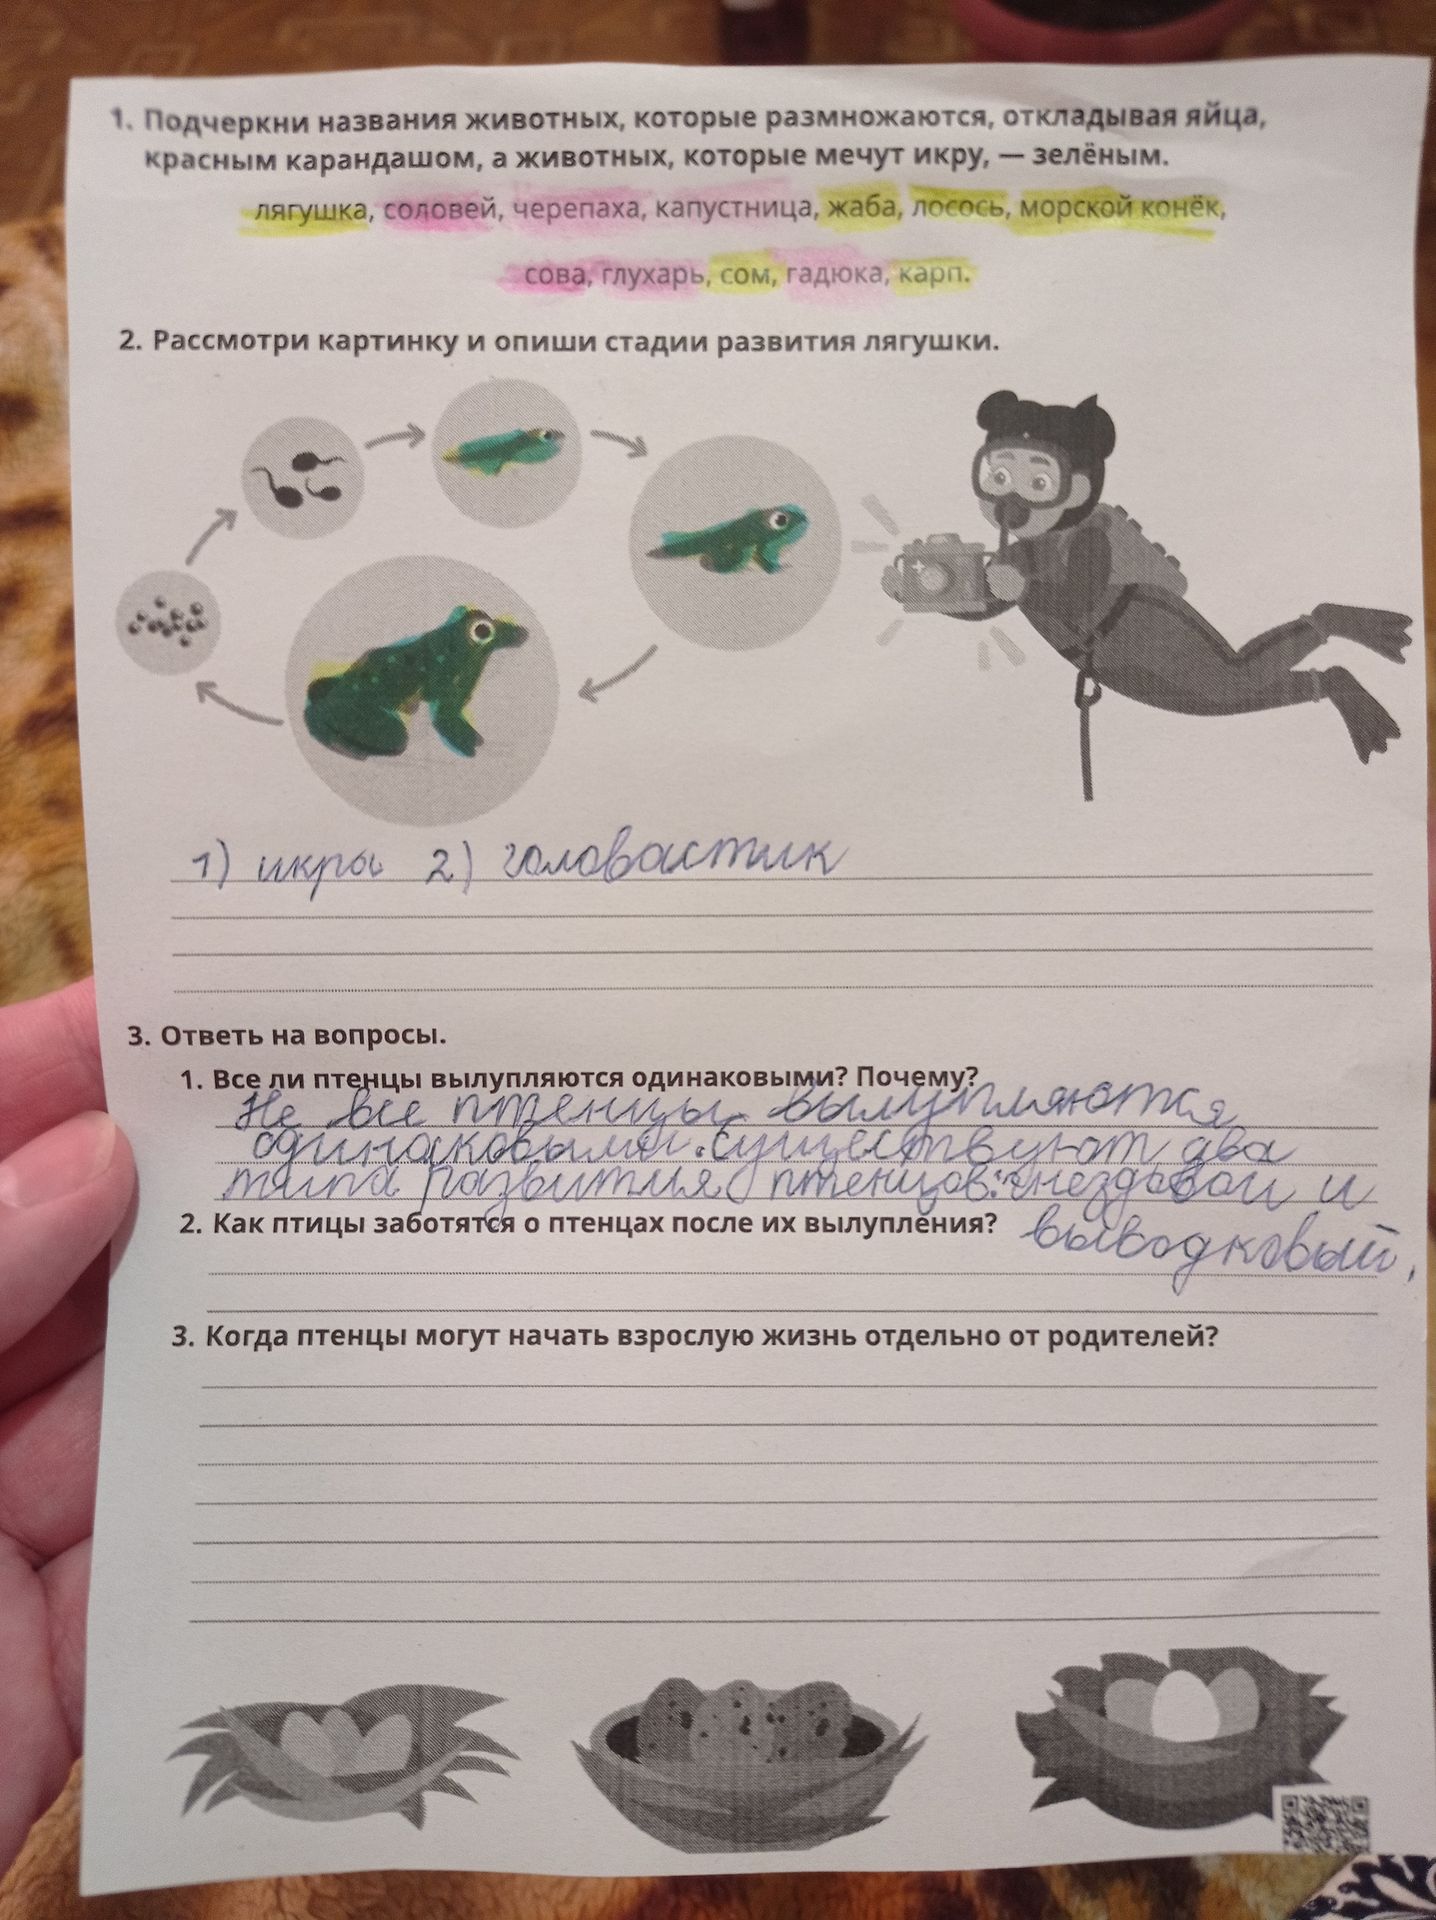 1. Подчеркни названия животных, которые размножаются, откладывая яйца,
красным карандашом, а животных, которые мечут икру, — зелёным.
лягушка, соловей, черепаха, капустница, жаба, лосось, морской конёк,
сова, глухарь, сом, гадюка, карп.
2. Рассмотри картинку и опиши стадии развития лягушки.
1) икры 2) головастик
3. Ответь на вопросы.
1. Все ли птенцы вылупляются одинаковыми? Почему?
Не все птенцы вылупляются
одинаковыми. Существуют два
типа развития птенцов: гнездовой и
2. Как птицы заботятся о птенцах после их вылупления? выводковый.
3. Когда птенцы могут начать взрослую жизнь отдельно от родителей?